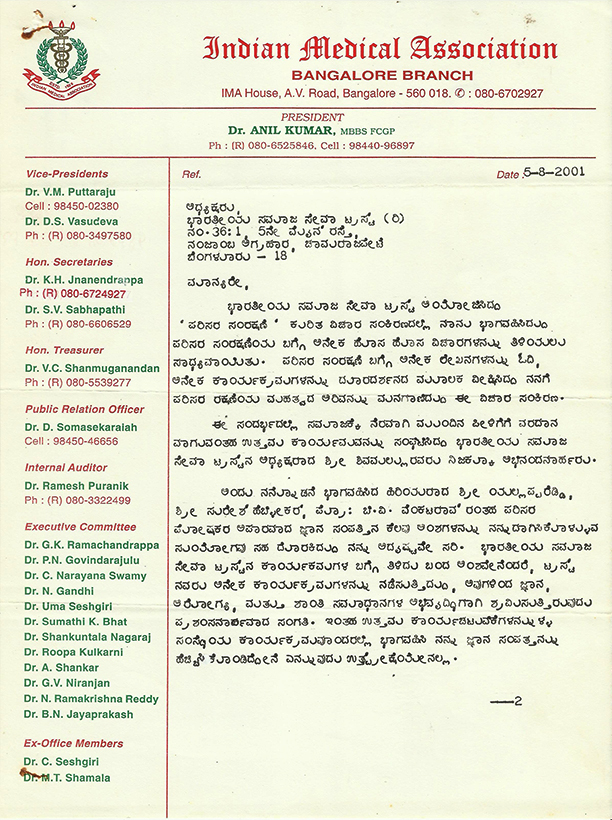 Indian Medical Association
BANGALORE BRANCH
IMA House, A.V. Road, Bangalore - 560 018. ✆ : 080-6702927
INDIAN MEDICAL ASSOCIATION
PRESIDENT
Dr. ANIL KUMAR, MBBS FCGP
Ph : (R) 080-6525846. Cell : 98440-96897
Vice-Presidents
Dr. V.M. Puttaraju
Cell : 98450-02380
Dr. D.S. Vasudeva
Ph : (R) 080-3497580
Hon. Secretaries
Dr. K.H. Jnanendrappa
Ph : (R) 080-6724927
Dr. S.V. Sabhapathi
Ph : (R) 080-6606529
Hon. Treasurer
Dr. V.C. Shanmuganandan
Ph : (R) 080-5539277
Public Relation Officer
Dr. D. Somasekaraiah
Cell : 98450-46656
Internal Auditor
Dr. Ramesh Puranik
Ph : (R) 080-3322499
Executive Committee
Dr. G.K. Ramachandrappa
Dr. P.N. Govindarajulu
Dr. C. Narayana Swamy
Dr. N. Gandhi
Dr. Uma Seshgiri
Dr. Sumathi K. Bhat
Dr. Shankuntala Nagaraj
Dr. Roopa Kulkarni
Dr. A. Shankar
Dr. G.V. Niranjan
Dr. N. Ramakrishna Reddy
Dr. B.N. Jayaprakash
Ex-Office Members
Dr. C. Seshgiri
Dr. M.T. Shamala
Ref.
Date :5-8-2001
ಅಧ್ಯಕ್ಷರು,
ಭಾರತೀಯ ಸಮಾಜ ಸೇವಾ ಟ್ರಸ್ಟ್ (ರಿ)
ನಂ.36:1, 5ನೇ ಮೈನ್ ರಸ್ತೆ,
ನಂಜಾಂಬ ಅಗ್ರಹಾರ, ಚಾಮರಾಜಪೇಟೆ
ಬೆಂಗಳೂರು - 18
ಮಾನ್ಯರೇ,
ಭಾರತೀಯ ಸಮಾಜ ಸೇವಾ ಟ್ರಸ್ಟ್ ಆಯೋಜಿಸಿದ
'ಪರಿಸರ ಸಂರಕ್ಷಣೆ' ಕುರಿತ ವಿಚಾರ ಸಂಕಿರಣದಲ್ಲಿ ನಾನು ಭಾಗವಹಿಸಿದ್ದು
ಪರಿಸರ ಸಂರಕ್ಷಣೆಯ ಬಗ್ಗೆ ಅನೇಕ ಹೊಸ ಹೊಸ ವಿಚಾರಗಳನ್ನು ತಿಳಿಯಲು
ಸಾಧ್ಯವಾಯಿತು. ಪರಿಸರ ಸಂರಕ್ಷಣೆ ಬಗ್ಗೆ ಅನೇಕ ಲೇಖನಗಳನ್ನು ಓದಿ,
ಅನೇಕ ಕಾರ್ಯಕ್ರಮಗಳನ್ನು ದೂರದರ್ಶನದ ಮೂಲಕ ವೀಕ್ಷಿಸಿದ ನನಗೆ
ಪರಿಸರ ರಕ್ಷಣೆಯ ಮಹತ್ವದ ಅರಿವನ್ನು ಮನಗಾಣಿಸಿದ್ದು ಈ ವಿಚಾರ ಸಂಕಿರಣ.
ಈ ಸಂದರ್ಭದಲ್ಲಿ ಸಮಾಜಕ್ಕೆ ನೆರವಾಗಿ ಮುಂದಿನ ಪೀಳಿಗೆಗೆ ವರದಾನ
ವಾಗುವಂತಹ ಉತ್ತಮ ಕಾರ್ಯವನ್ನು ಸಂಘಟಿಸಿದ ಭಾರತೀಯ ಸಮಾಜ
ಸೇವಾ ಟ್ರಸ್ಟಿನ ಅಧ್ಯಕ್ಷರಾದ ಶ್ರೀ ಶಿವಮಲ್ಲುರವರು ನಿಜಕ್ಕೂ ಅಭಿನಂದನಾರ್ಹರು.
ಅಂದು ನನ್ನೊಡನೆ ಭಾಗವಹಿಸಿದ ಹಿರಿಯರಾದ ಶ್ರೀ ಯಲ್ಲಪ್ಪರೆಡ್ಡಿ,
ಶ್ರೀ ಸುರೇಶ್ ಹೆಬ್ಳೀಕರ್, ಪ್ರೊ: ಟಿ.ವಿ. ವೆಂಕಟರಾವ್ ರಂತಹ ಪರಿಸರ
ಪೋಷಕರ ಅಪಾರವಾದ ಜ್ಞಾನ ಸಂಪತ್ತಿನ ಕೆಲವು ಅಂಶಗಳನ್ನು ನನ್ನದಾಗಿಸಿಕೊಳ್ಳುವ
ಸುಯೋಗವು ಸಹ ದೊರಕಿದ್ದು ನನ್ನ ಅದೃಷ್ಟವೇ ಸರಿ. ಭಾರತೀಯ ಸಮಾಜ
ಸೇವಾ ಟ್ರಸ್ಟಿನ ಕಾರ್ಯಕ್ರಮಗಳ ಬಗ್ಗೆ ತಿಳಿದು ಬಂದ ಅಂಶವೇನೆಂದರೆ, ಟ್ರಸ್ಟ್
ನವರು ಅನೇಕ ಕಾರ್ಯಕ್ರಮಗಳನ್ನು ನಡೆಸುತ್ತಿದ್ದು, ಅವುಗಳಿಂದ ಜ್ಞಾನ,
ಆರೋಗ್ಯ, ಮತ್ತು ಶಾಂತಿ ಸಮಾಧಾನಗಳ ಅಭಿವೃದ್ಧಿಗಾಗಿ ಶ್ರಮಿಸುತ್ತಿರುವುದು
ಪ್ರಶಂಸನಾರ್ಹವಾದ ಸಂಗತಿ. ಇಂತಹ ಉತ್ತಮ ಕಾರ್ಯಚಟುವಟಿಕೆಗಳನ್ನುಳ್ಳ
ಸಂಸ್ಥೆಯ ಕಾರ್ಯಕ್ರಮವೊಂದರಲ್ಲಿ ಭಾಗವಹಿಸಿ ನನ್ನ ಜ್ಞಾನ ಸಂಪತ್ತನ್ನು
ಹೆಚ್ಚಿಸಿ ಕೊಂಡಿದ್ದೇನೆ ಎನ್ನುವುದು ಉತ್ಪ್ರೇಕ್ಷೆಯೇನಲ್ಲ.
—2